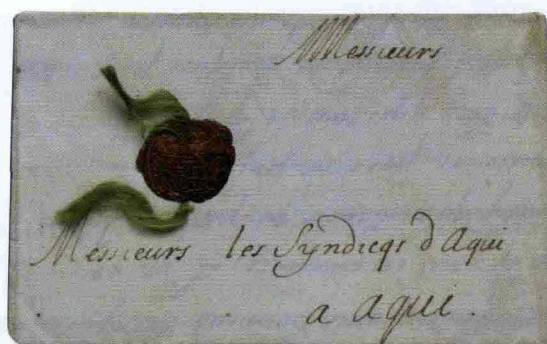 Messieurs
Messieurs les Syndiqs d'Aqui
a aqui.